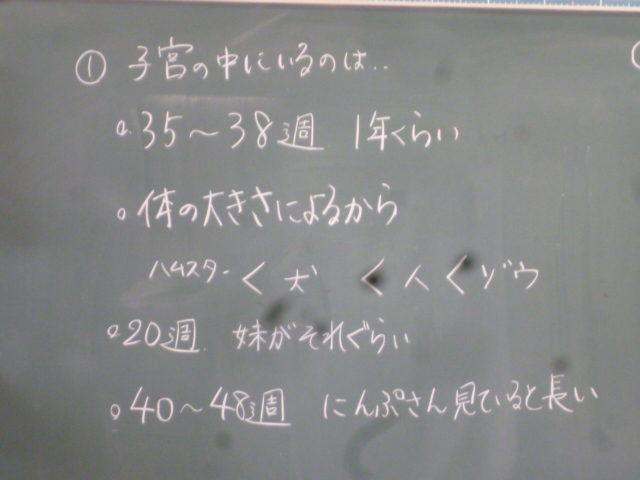 ① 子宮の中にいるのは..
。35～38週 1年くらい
。体の大きさによるから
ハムスター < 犬 < 人 < ゾウ
。20週 妹がそれぐらい
。40～48週 にんぷさん見ていると長い